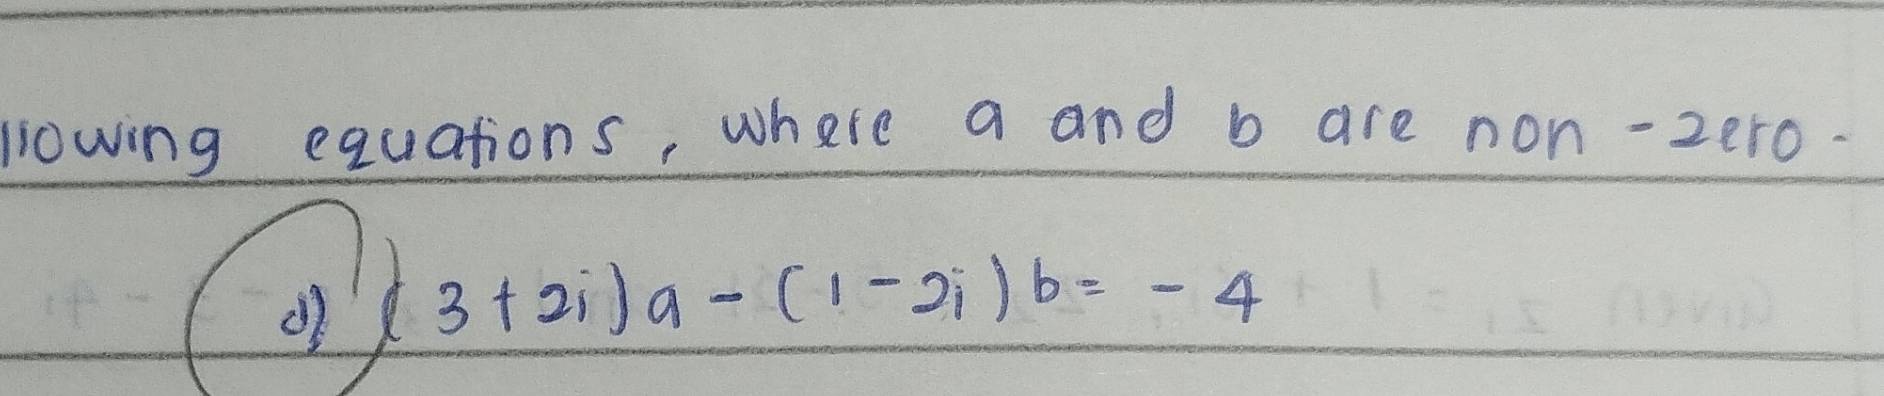 llowing equations, where a and b are non-zero.
d) (3+2i)a - (1-2i)b = -4